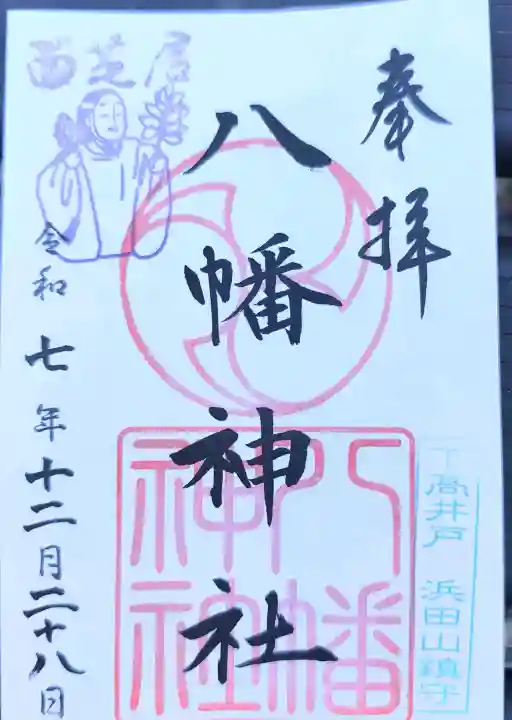 奉拝
八幡神社
八幡神社
下高井戸 浜田山鎮守
面芝居
令和七年十二月二十八日